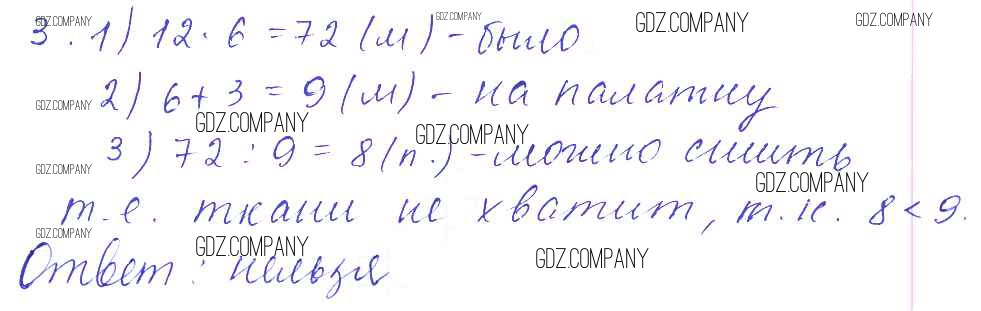 GDZ.COMPANY GDZ.COMPANY GDZ.COMPANY GDZ.COMPANY
3. 1) 12 · 6 = 72 (м) - было
2) 6 + 3 = 9 (м) - на палатку
GDZ.COMPANY GDZ.COMPANY GDZ.COMPANY
3) 72 : 9 = 8 (п.) - можно сшить
GDZ.COMPANY GDZ.COMPANY
т.е. ткани не хватит, т.к. 8 < 9.
GDZ.COMPANY GDZ.COMPANY GDZ.COMPANY
Ответ: нельзя